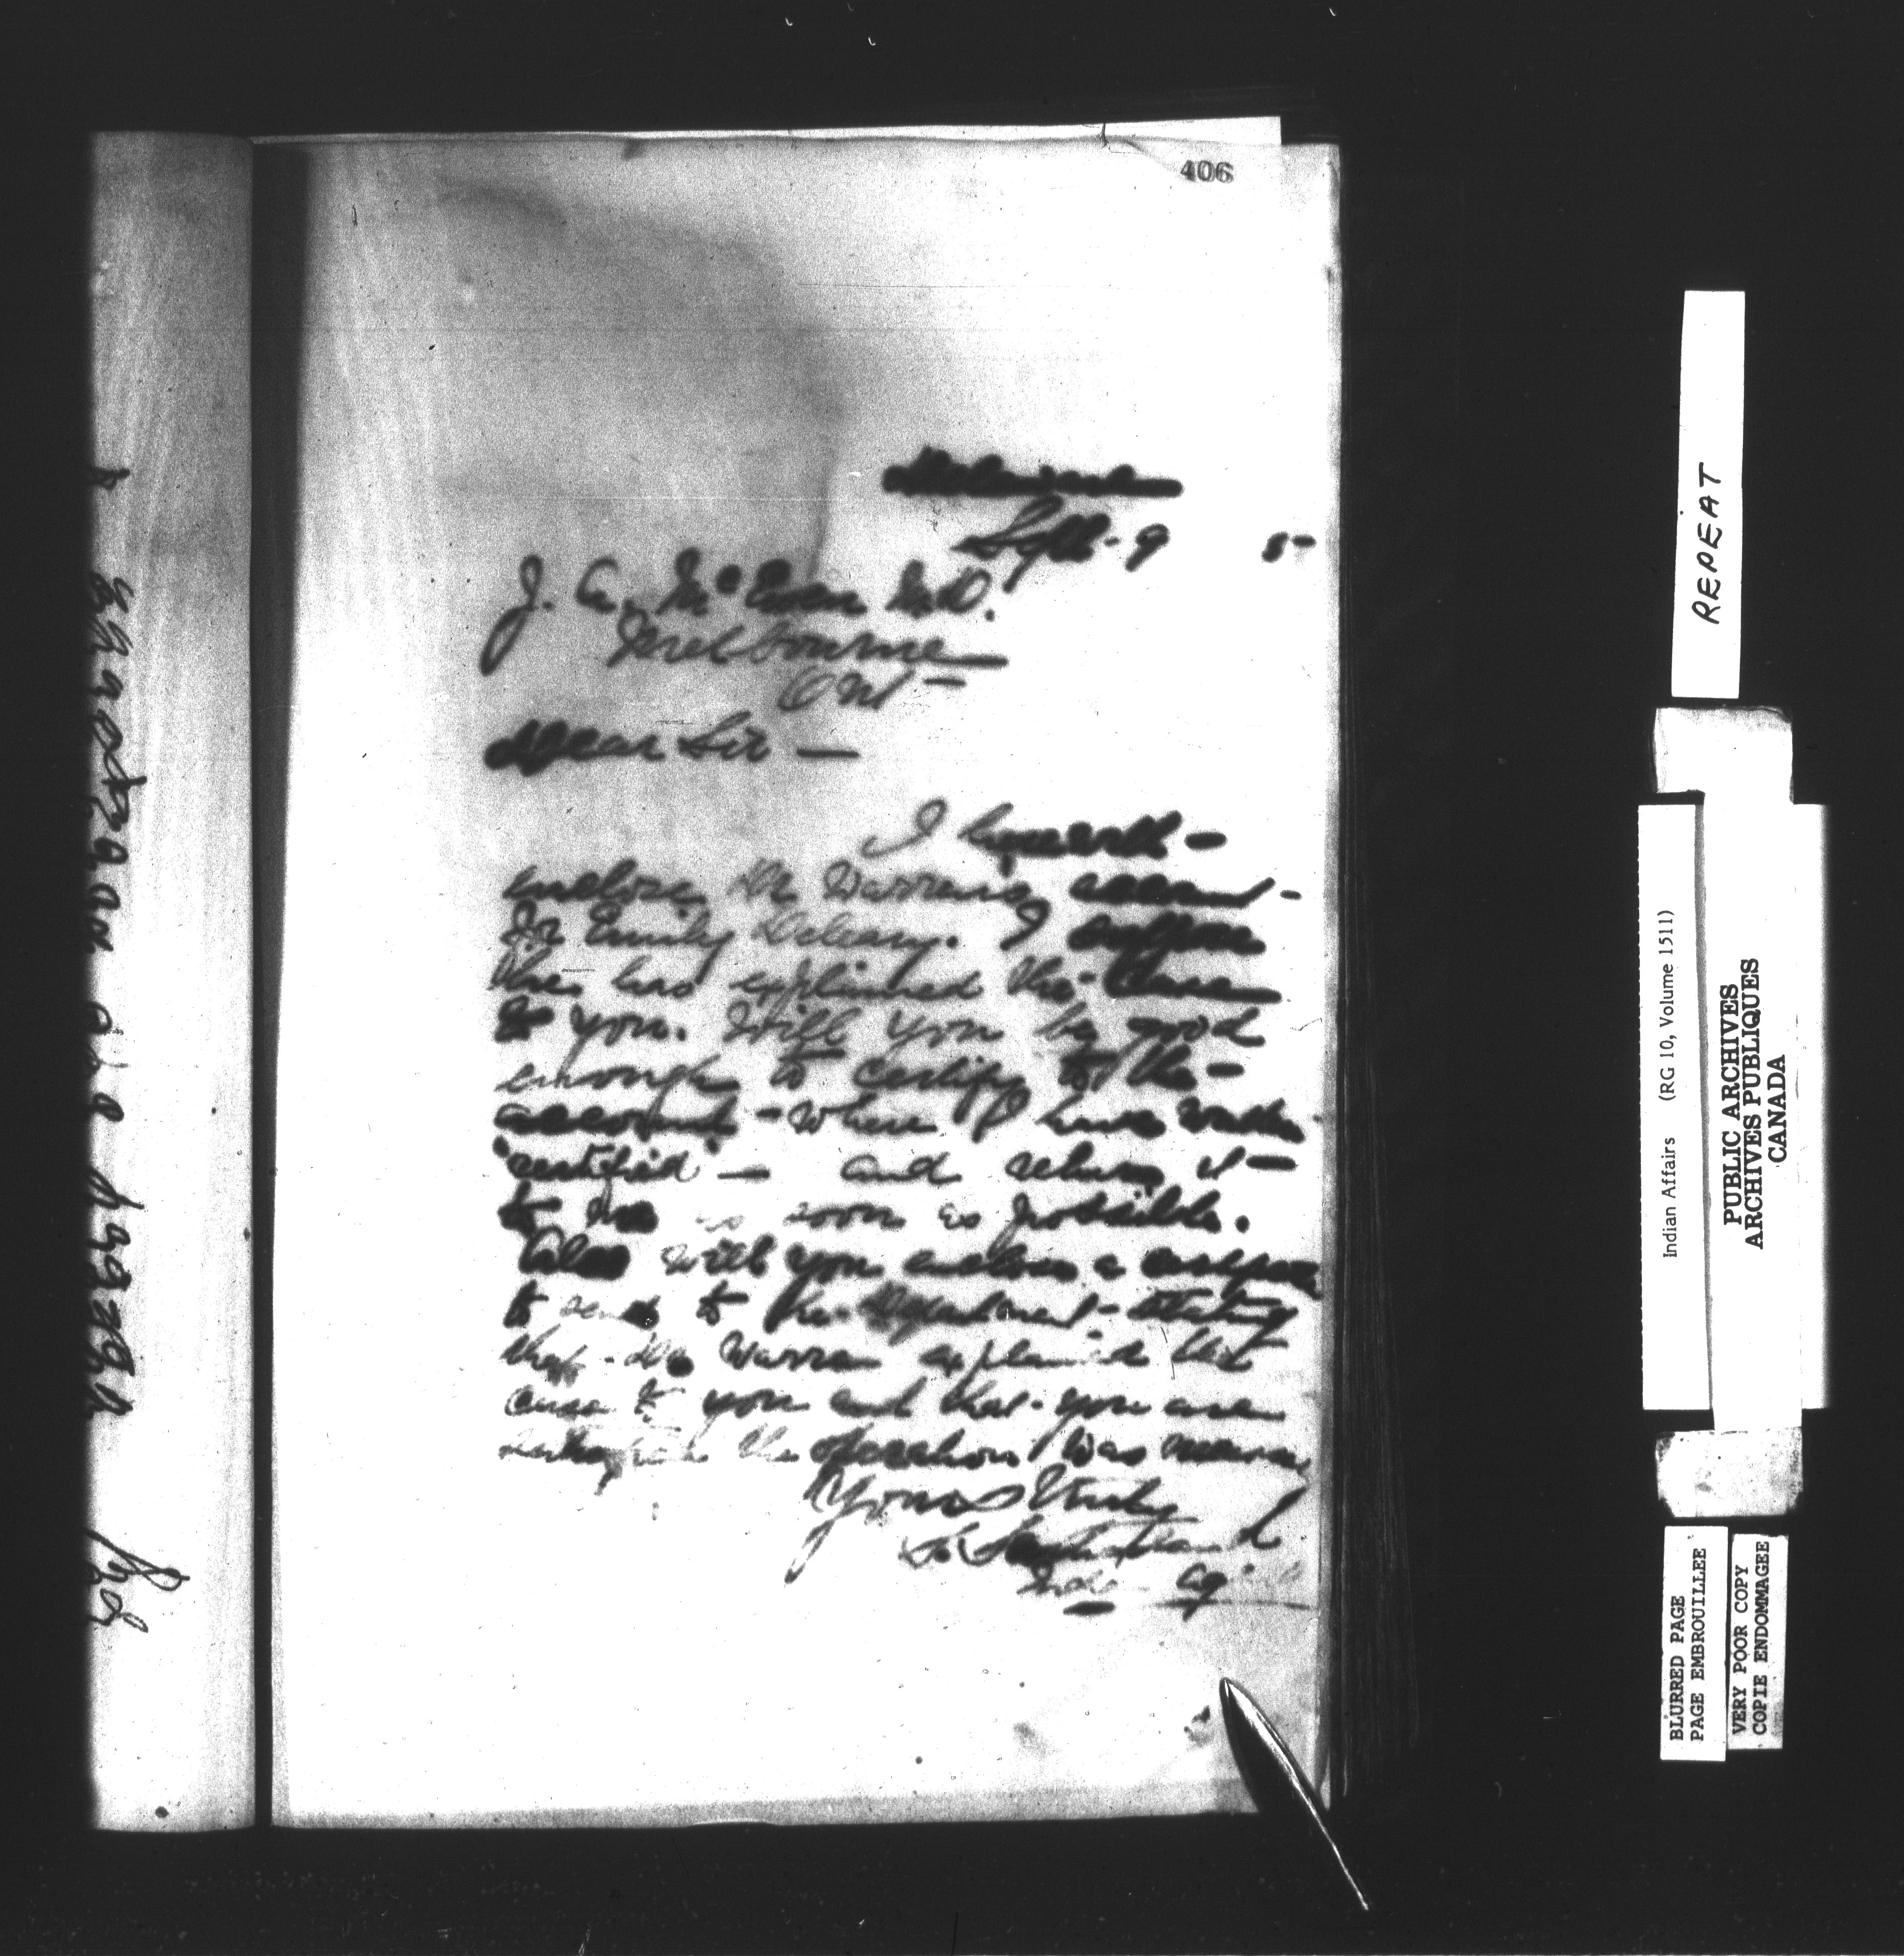 406
Sept - 9 5-
J. A. McEwen M.D.
Melbourne
Ont -
Dear Sir —
I herewith -
enclose Dr Warren's account -
for Emily Deleary. I suppose
he has explained the case
to you. Will you be good
enough to certify to the -
account - where I have written
"certified" — and return it —
to me as soon as possible.
Also will you enclose a
to send to the Department - stating
that - Dr Warren explained the
case to you and that - you are
the operation was
Yours truly
S. Sutherland
Indian Agent
REPEAT
Indian Affairs (RG 10, Volume 1511)
PUBLIC ARCHIVES
ARCHIVES PUBLIQUES
CANADA
BLURRED PAGE
PAGE EMBROUILLEE
VERY POOR COPY
COPIE ENDOMMAGEE